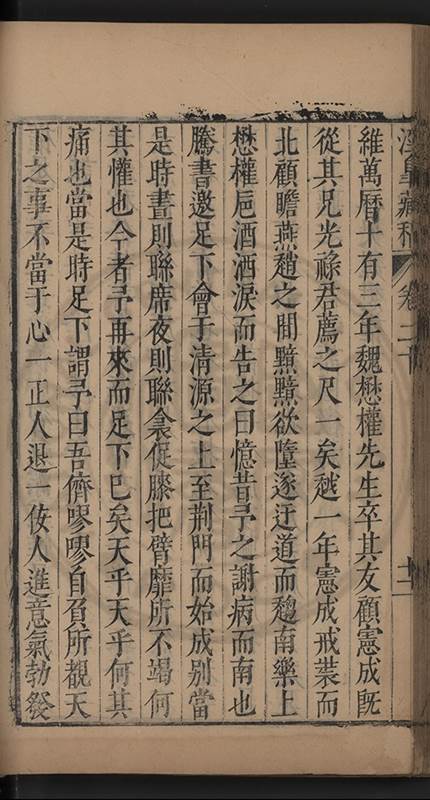 涇皐藏稿 卷二十 十二
維萬曆十有三年魏懋權先生卒其友顧憲成旣
從其兄光祿君薦之尺一矣越一年憲成戒裝而
北顧瞻燕趙之間黯黯欲墮遂迂道而趨南樂上
懋權巵酒洒淚而告之曰憶昔予之謝病而南也
騰書邀足下會于清源之上至荆門而始成别當
是時晝則聯席夜則聯衾促膝把臂靡所不竭何
其懽也今者予再來而足下已矣天乎天乎何其
痛也當是時足下謂予曰吾儕嘐嘐自負所觀天
下之事不當于心一正人退一佞人進意氣勃發